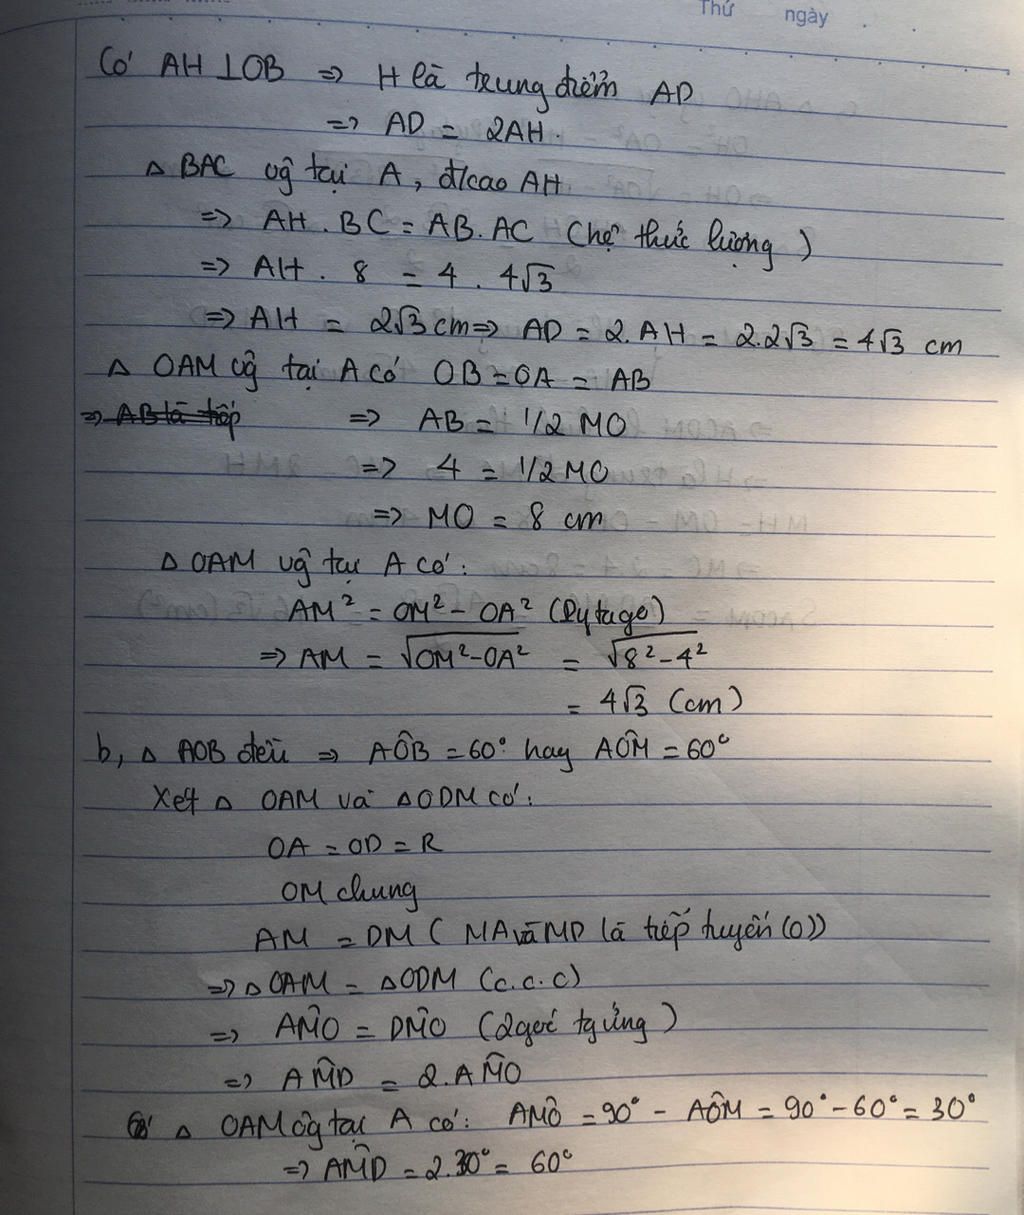 Thứ ngày
Có AH ⊥ OB => H là trung điểm AD
=> AD = 2AH.
△ BAC vg tại A, đ/cao AH
=> AH . BC = AB. AC (hệ thức lượng)
=> AH . 8 = 4 . 4√3
=> AH = 2√3 cm => AD = 2.AH = 2.2√3 = 4√3 cm
△ OAM vg tại A có OB = OA = AB
=> AB là tiếp => AB = 1/2 MO
=> 4 = 1/2 MO
=> MO = 8 cm
△ OAM vg tại A có:
AM² = OM² - OA² (Pytago)
=> AM = √OM²-OA² = √8²-4²
= 4√3 (cm)
b, △ AOB đều => AÔB = 60° hay AÔM = 60°
Xét △ OAM và △ODM có:
OA = OD = R
OM chung
AM = DM ( MA và MD là tiếp tuyến (O))
=> △OAM = △ODM (c.c.c)
=> AM̂O = DM̂O (2 góc tg ứng)
=> AM̂D = 2.AM̂O
△ OAM vg tại A có: AM̂O = 90° - AÔM = 90° - 60° = 30°
=> AM̂D = 2.30° = 60°